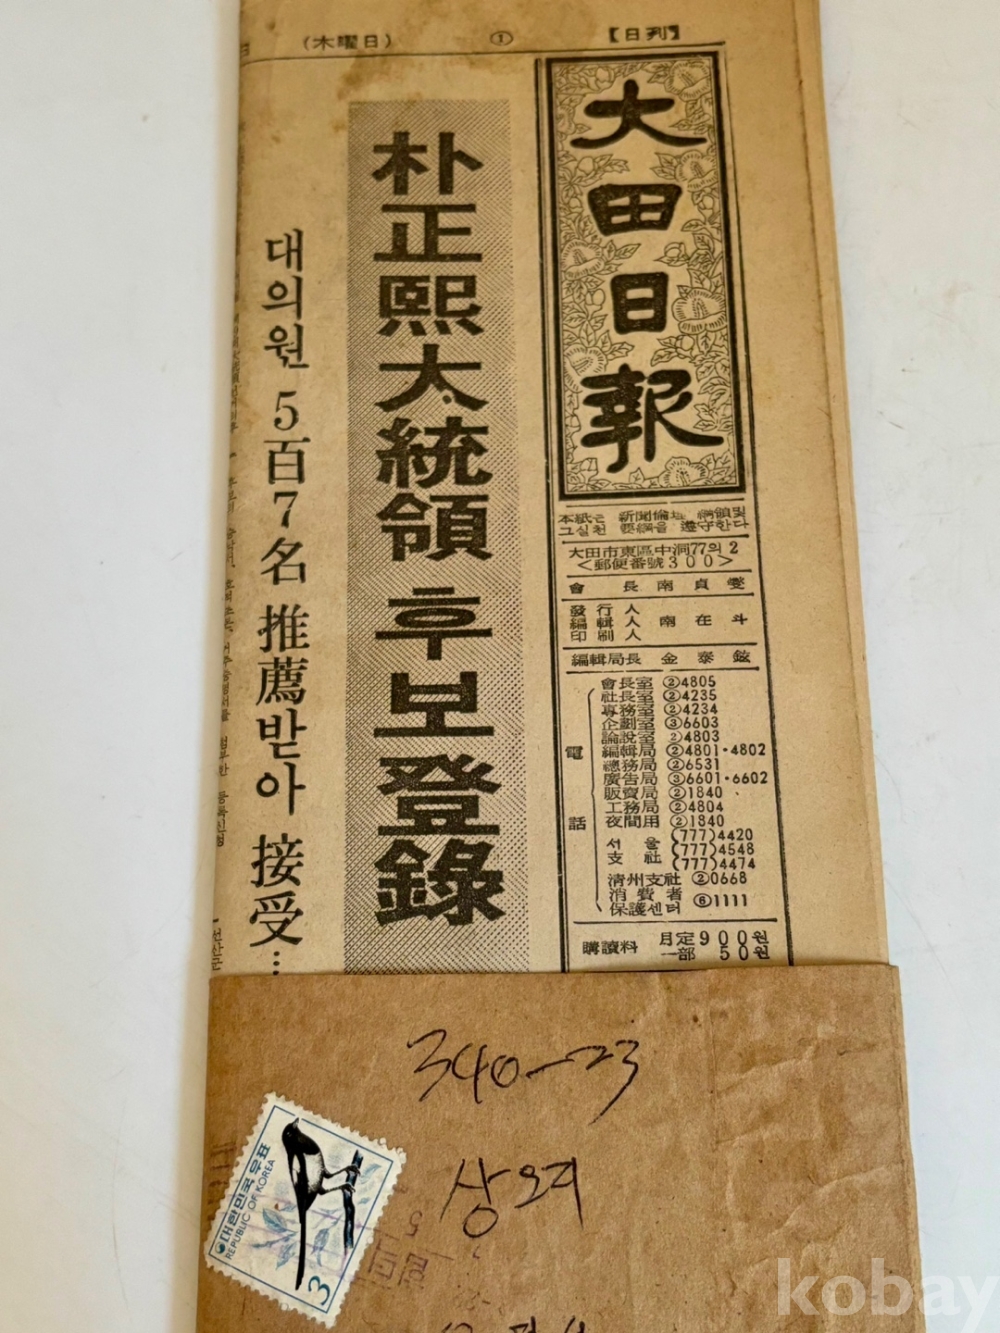 (木曜日) ① 【日刊】
大田日報
朴正熙大統領 후보登錄
대의원 5百7名 推薦받아 接受…
本紙는 新聞倫理 綱領및
그실천 要綱을 遵守한다
大田市東區中洞77의2
<郵便番號300>
會長 南貞燮
發行人
編輯人 南在斗
印刷人
編輯局長 金泰鉉
電話
會長室 ②4805
社長室 ②4235
專務室 ②4234
企劃室 ③6603
論說室 ②4803
編輯局 ②4801·4802
總務局 ②6531
廣告局 ③6601·6602
販賣局 ②1840
工務局 ②4804
夜間用 ②1840
서울支社 (777)4420
(777)4548
(777)4474
清州支社 ②0668
消費者
保護센터 ⑥1111
購讀料 月定900원
一部 50원
340-23
대한민국 우표
REPUBLIC OF KOREA
3
kobay